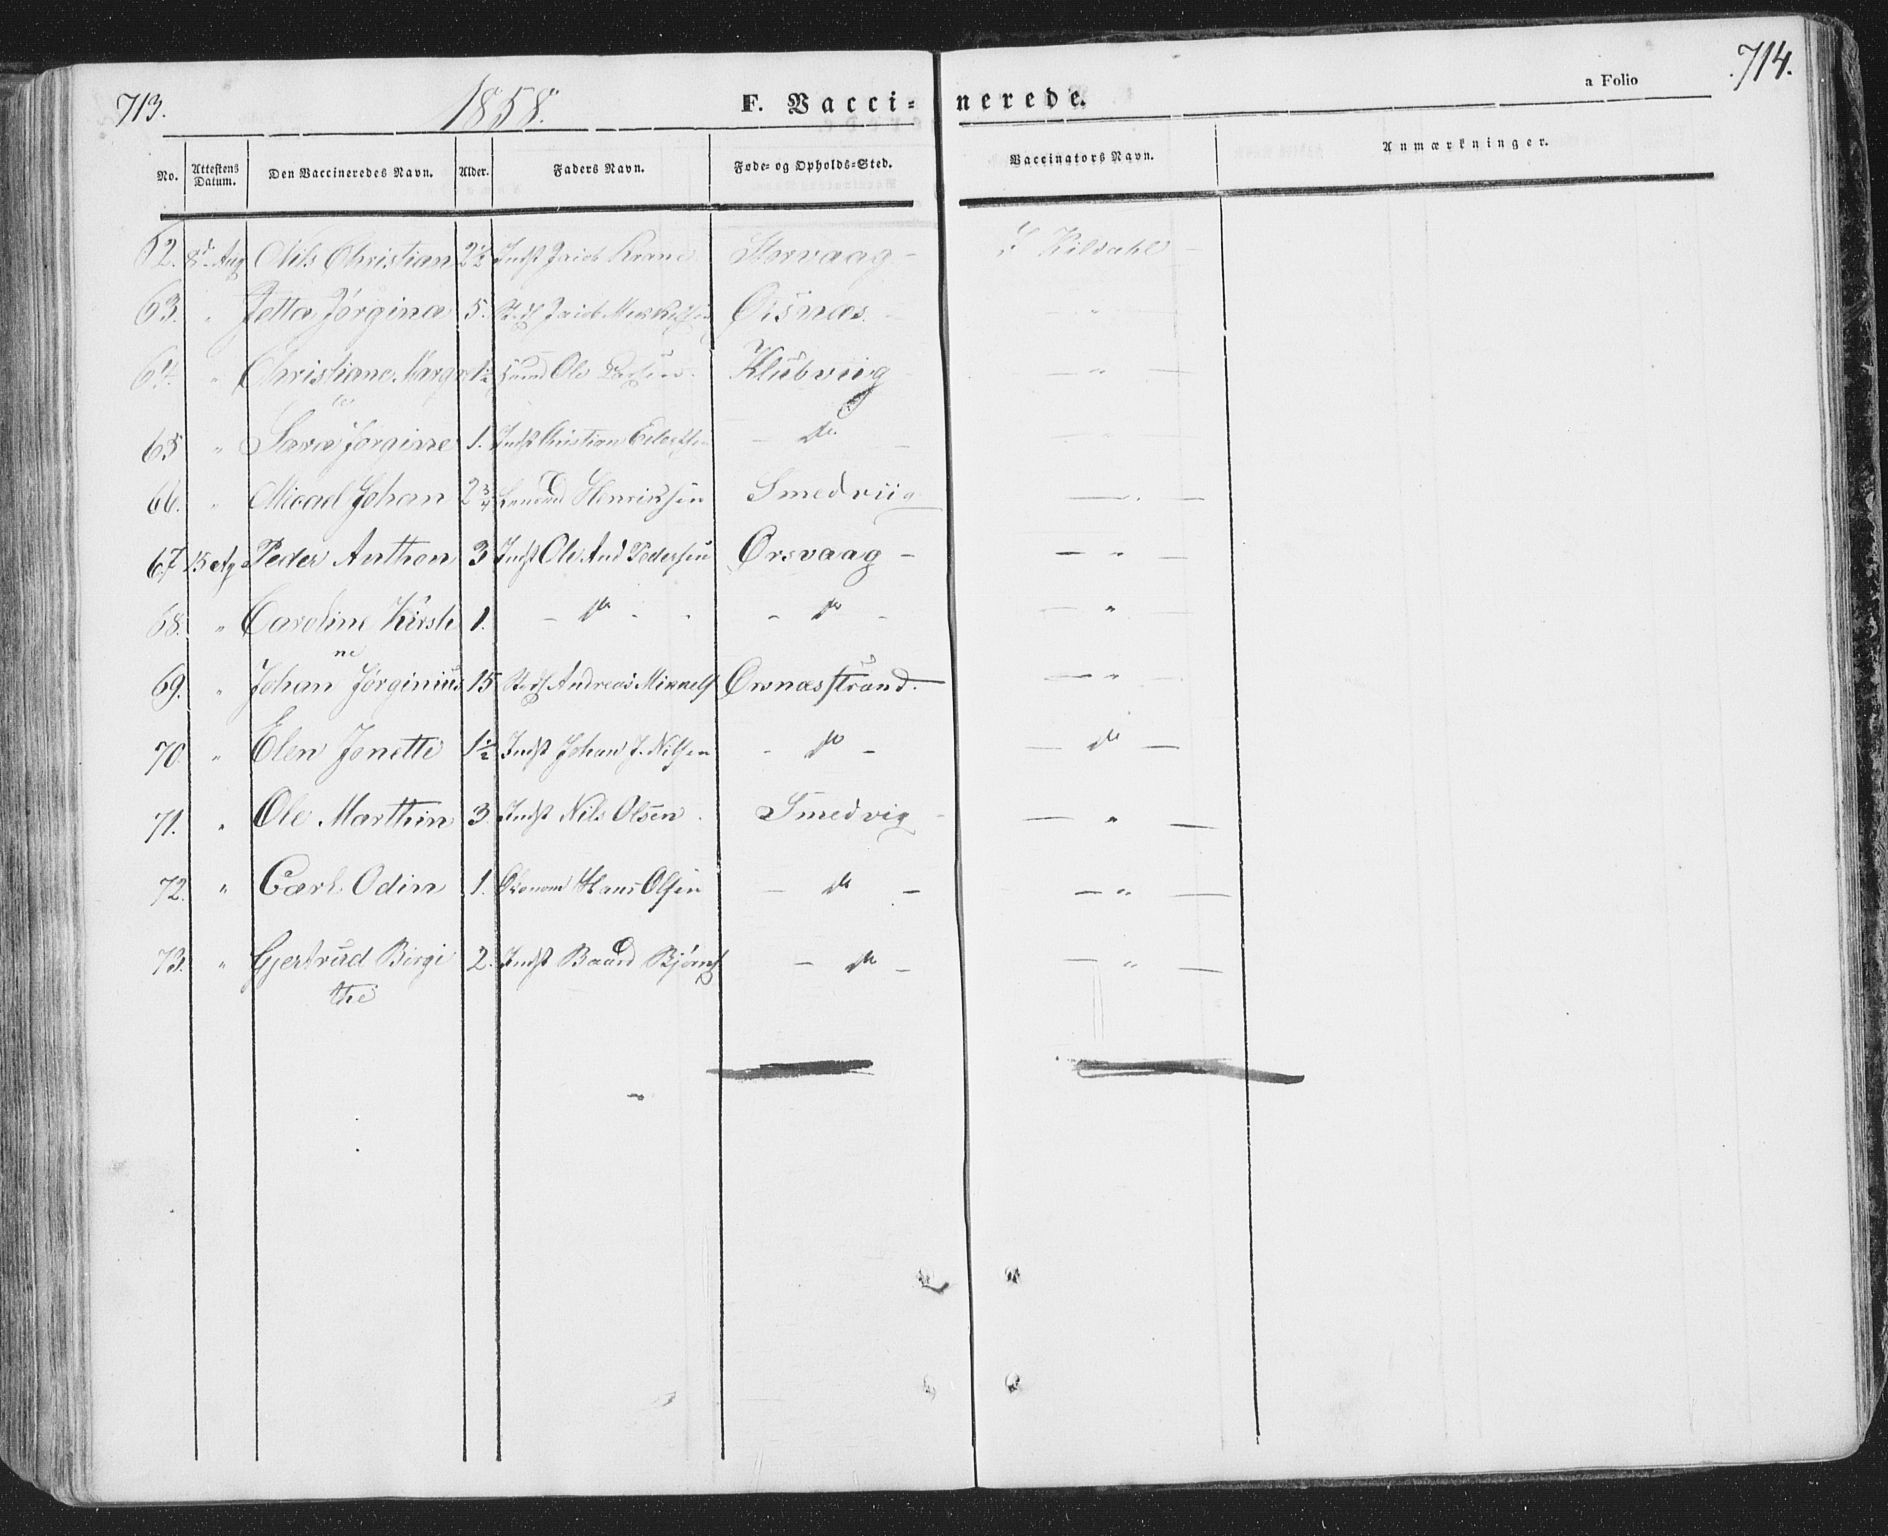 713.
1858.
F. Vacci-
nerede.
a Folio
714.
No.
Attestens Datum.
Den Vaccineredes Navn.
Alder.
Faders Navn.
Føde- og Opholds-Sted.
Vaccinators Navn.
Anmærkninger.
62. 8d Aug Nils Christian 2½ Indst Jacob Krane Storvaag - Kildahl -
63. " Jetta Jørgina 5. Jacob Øisnæs. - "
64. " Christiane Marg 1½ Ole Klubviig - " -
65 " Sara Jørgine 1. Indst Christian - do - "
66. " Micael Johan 2¾ Henriksen Smedviig - " -
67. 15 Ag Peder Anthon 3 Indst Ole And Pedersen Ørsvaag - - " -
68. " Caroline Kirsti 1. - do - - do - - " -
ne
69. " Johan Jørginius 15 Andreas Mikkels Ørsnæsstrand. - " -
70. " Elen Jonette 1½ Indst Johan J. Nilsen - do - - do -
71. " Ole Marthin 3. Indst Nils Olsen. Smedvig - - " -
72. " Carl Odin 1. Hans Olsen - do - - " -
73. " Gjertrud Birgi 2. Indst Baard Bjørns - do - - " -
the